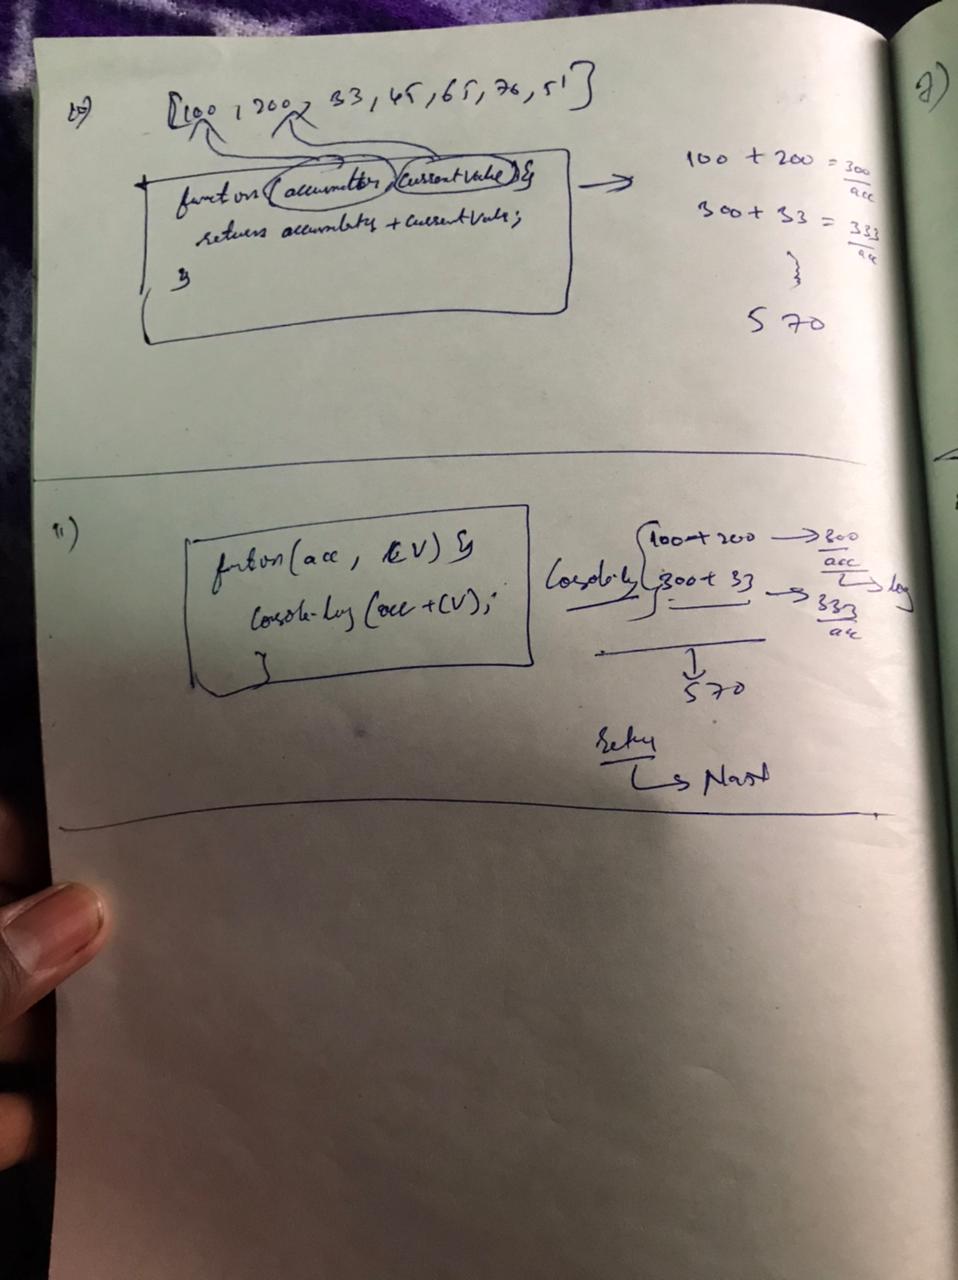 10) [100, 200, 33, 45, 65, 76, 51]
function (accumulator, currentValue) {
return accumulator + currentValue;
}
100 + 200 = 300
acc
300 + 33 = 333
acc
}
570
11)
function (acc, CV) {
console.log (acc + CV);
}
Console.log { 100 + 200 → 300
acc
↳ log
300 + 33 → 333
acc
↓
570
return
↳ NaN
2)